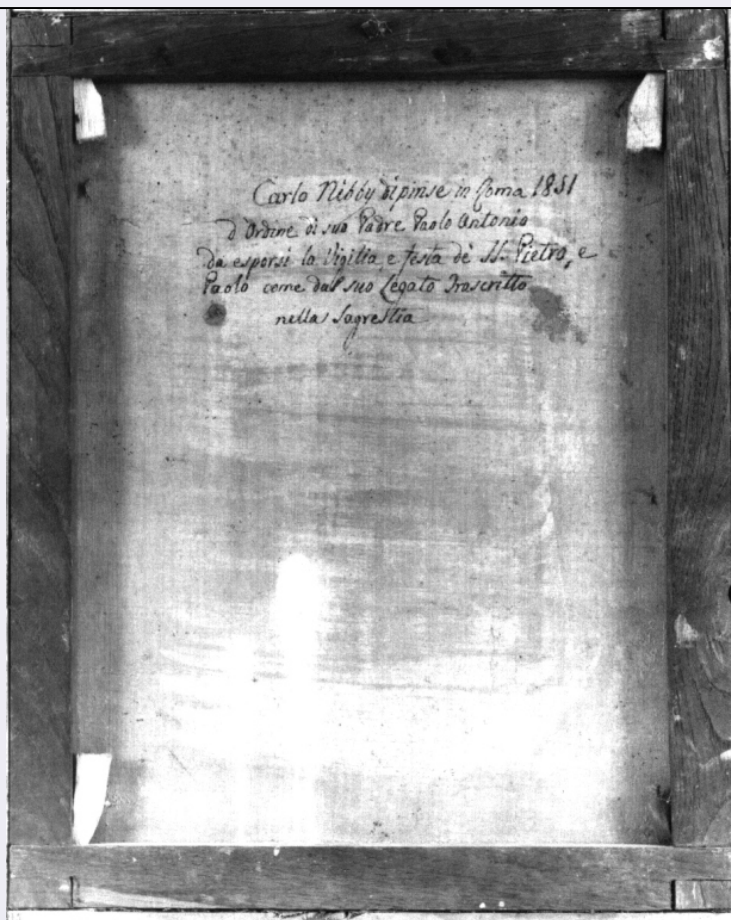 Carlo Nibby dipinse in Roma 1851
d'Ordine di suo Padre Paolo Antonio
da esporsi la Vigilia, e festa dè SS. Pietro, e
Paolo come dal suo Legato Trascritto
nella Sagrestia